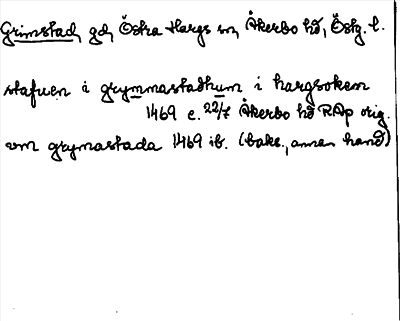 Grimstad, gd, Östra Hargs sn, Åkerbo hd, Östg. l.
stafuen i grymmastadhum i hargsoken
1469 e. 22/7 Åkerbo hd RAp orig.
vm grymastada 1469 ib. (baks., annan hand)